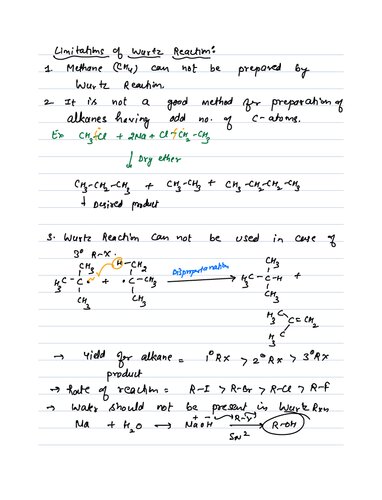 Limitations of Wurtz Reaction:
1. Methane (CH4) can not be prepared by
Wurtz Reaction.
2. It is not a good method for preparation of
alkanes having odd no. of C-atoms.
Ex CH3-Cl + 2Na + Cl-CH2-CH3
↓ Dry ether
CH3-CH2-CH3 + CH3-CH3 + CH3-CH2-CH2-CH3
↓ Desired product
3. Wurtz Reaction can not be used in case of
3° R-X.
CH3 H-CH2 CH3
H3C-C• + •C-CH3 Disproportionation → H3C-C-H +
CH3 CH3 CH3
H3C
C=CH2
H3C
→ Yield for alkane = 1° RX > 2° RX > 3° RX
product
→ Rate of reaction = R-I > R-Br > R-Cl > R-F
→ Water should not be present in Wurtz Rxn
Na + H2O → NaOH R-X → SN2 R-OH